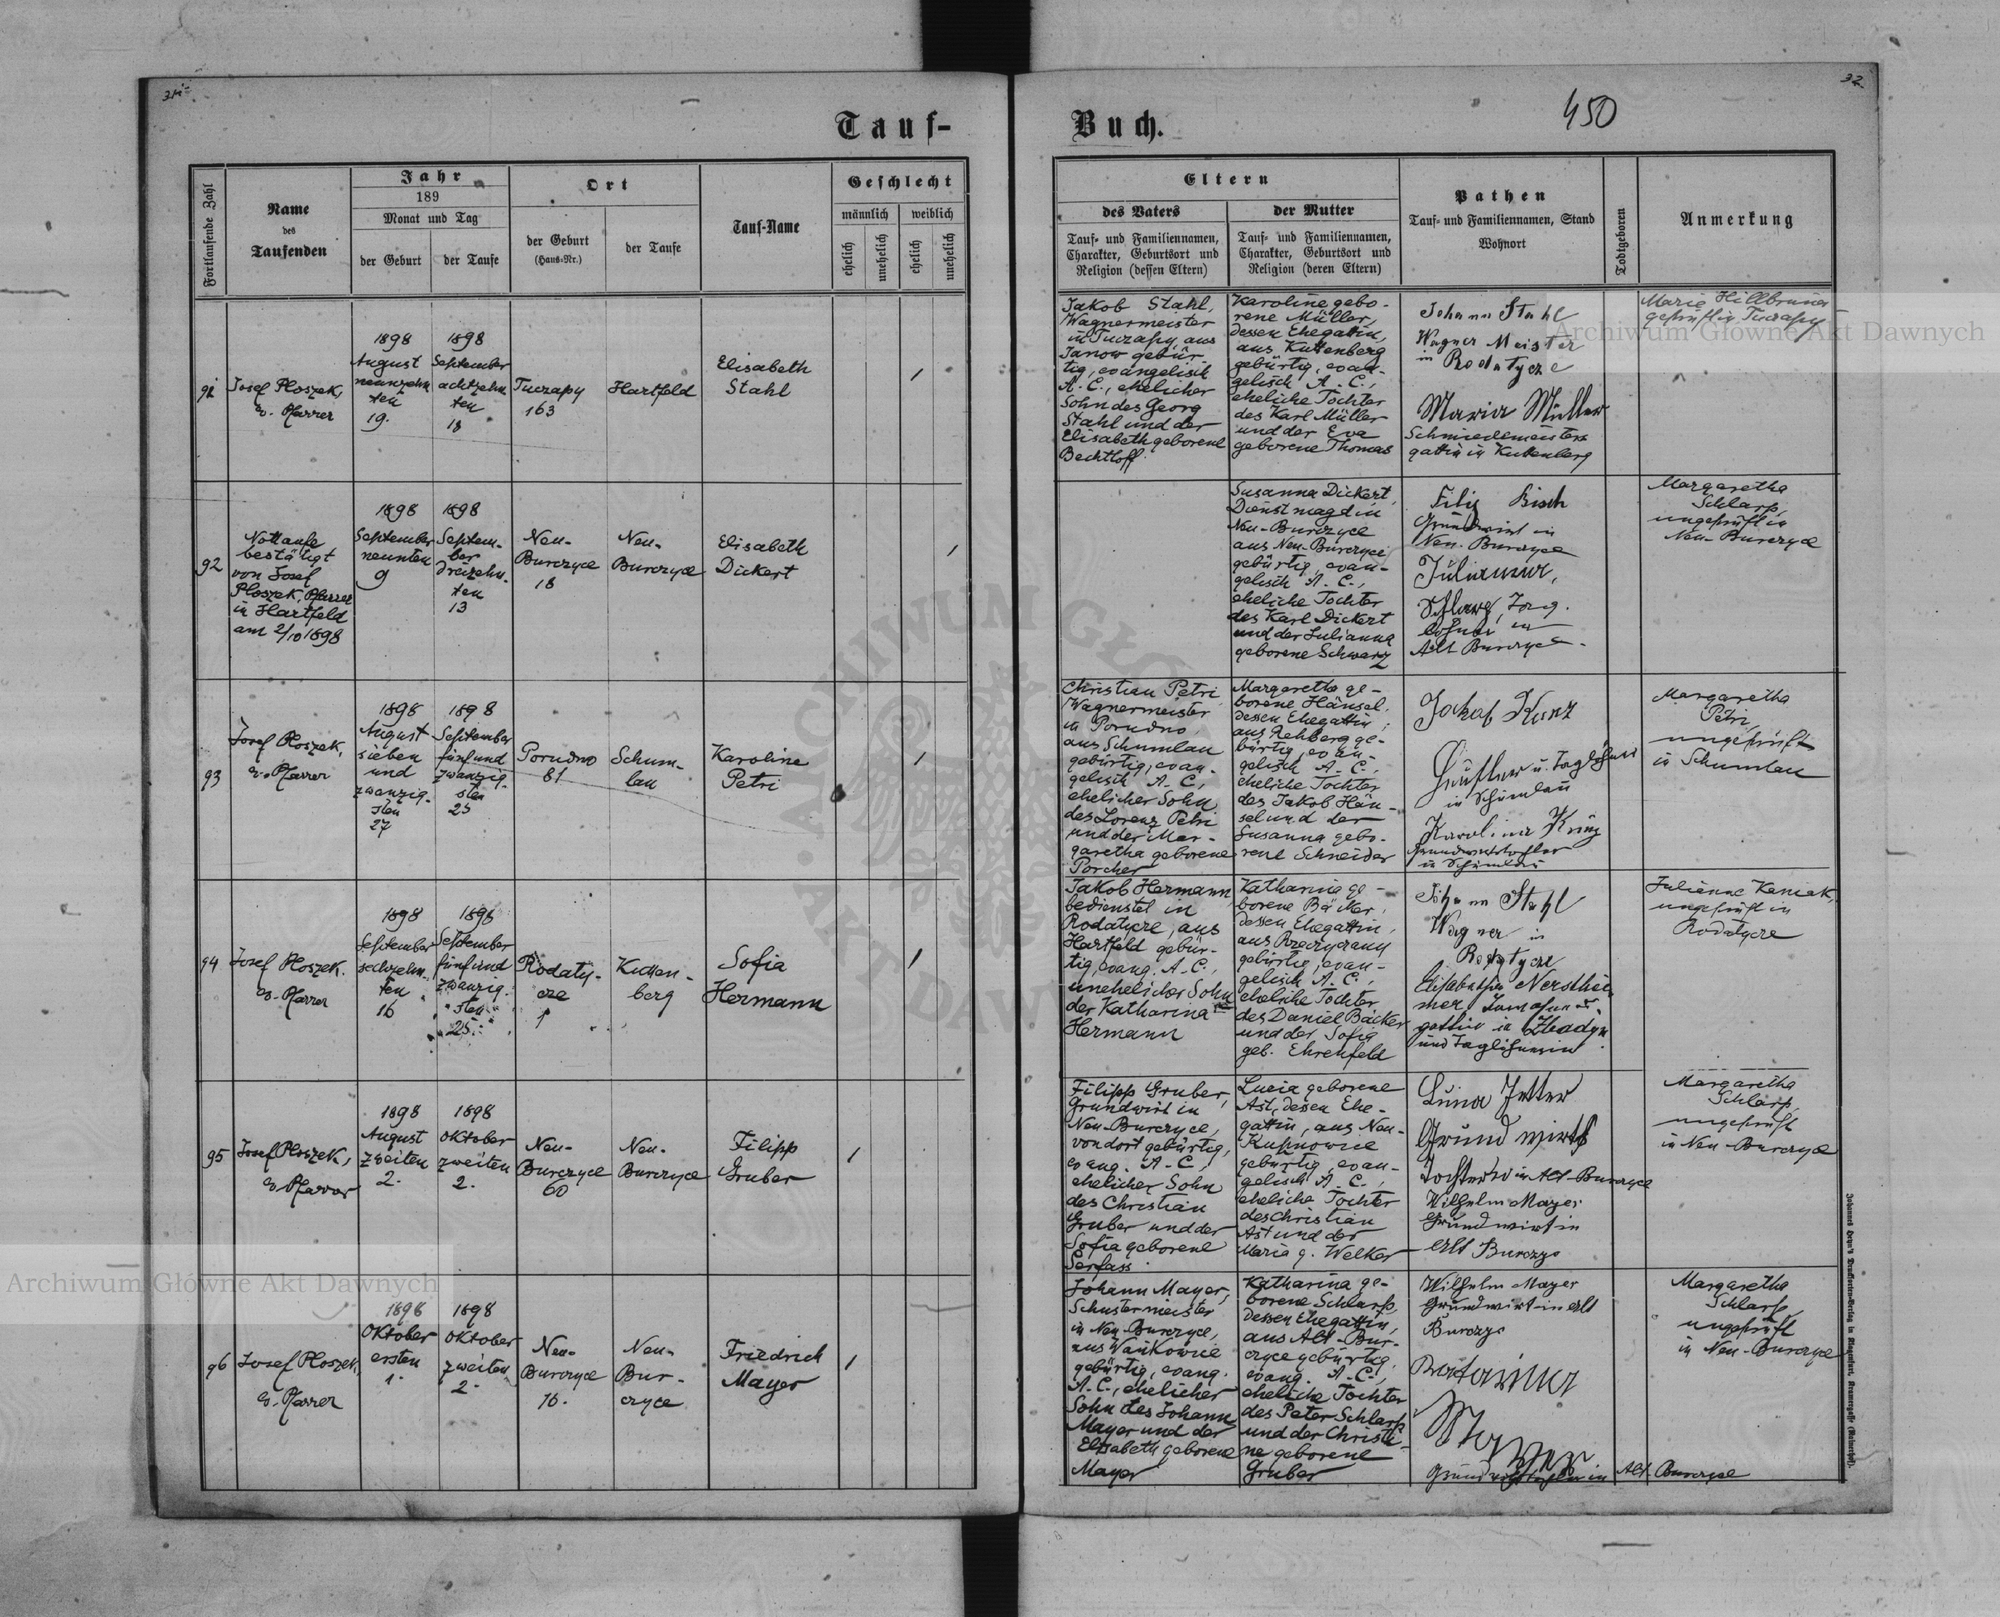 31
32
450
Tauf-
Buch.
Fortlaufende Zahl
Name
des
Taufenden
Jahr
189
Monat und Tag
der Geburt
der Taufe
Ort
der Geburt
(Haus-Nr.)
der Taufe
Tauf-Name
Geschlecht
männlich
weiblich
ehelich
unehelich
ehelich
unehelich
Eltern
des Vaters
Tauf- und Familiennamen,
Charakter, Geburtsort und
Religion (dessen Eltern)
der Mutter
Tauf- und Familiennamen,
Charakter, Geburtsort und
Religion (deren Eltern)
Pathen
Tauf- und Familiennamen, Stand
Wohnort
Todtgeboren
Anmerkung
91
Josef Ploszek,
ev. Pfarrer
1898
August
neunzehn
ten
19.
1898
September
achtzehn
ten
18
Tuczapy
163
Hartfeld
Elisabeth
Stahl
Jakob Stahl,
Wagnermeister
in Tuczapy, aus
Janow gebür-
tig, evangelisch
A. C., ehelicher
Sohn des Georg
Stahl und der
Elisabeth geborene
Bechtloff
Karoline gebo-
rene Müller,
dessen Ehegattin,
aus Kuttenberg
gebürtig, evan-
gelisch A. C.,
eheliche Tochter
des Karl Müller
und der Eva
geborene Thomas
Johann Stahl
Wagner Meister
in Rodatycze
Maria Müller
Schmiedemeisters
gattin in Kuttenberg
Marie Hillbruner
geprüft in Tuczapy
92
Nottaufe
bestätigt
von Josef
Ploszek, Pfarrer
in Hartfeld
am 2/10 1898
1898
September
neunten
9
1898
Septem-
ber
dreizehn-
ten
13
Neu-
Burczyce
18
Neu-
Burczyce
Elisabeth
Dickert
Susanna Dickert,
Dienstmagd in
Neu-Burczyce
aus Neu-Burczyce
gebürtig, evan-
gelisch A. C.,
eheliche Tochter
des Karl Dickert
und der Julianna
geborene Schwarz
Filip Bisch
Grundwirt in
Neu-Burczyce
Julianna,
Schlarp, Tag-
löhner in
Alt Burczyce.
Margaretha
Schlarp,
ungeprüft in
Neu-Burczyce
93
Josef Ploszek,
ev. Pfarrer
1898
August
sieben
und
zwanzig-
sten
27
1898
September
fünf und
zwanzig-
sten
25
Porudno
81
Schum-
lau
Karoline
Petri
Christian Petri
Wagnermeister
in Porudno,
aus Schumlau
gebürtig, evan-
gelisch A. C.,
ehelicher Sohn
des Lorenz Petri
und der Mar-
garetha geborene
Porcher
Margaretha ge-
borene Hänsel,
dessen Ehegattin,
aus Rehberg ge-
bürtig, evan-
gelisch A. C.,
eheliche Tochter
des Jakob Hän-
sel und der
Susanna gebo-
rene Schneider
Jakob Kunz
Häusler u. Taglöhner
in Schumlau
Karolina Kunz
Grundwirtstochter
in Schumlau
Margaretha
Petri,
ungeprüft
in Schumlau
94
Josef Ploszek.
ev. Pfarrer
1898
September
sechzehn-
ten
16
1898
September
fünf und
zwanzig-
sten
25.
Rodaty-
cze
1
Kutten-
berg
Sofia
Hermann
Jakob Hermann,
bedienstet in
Rodatycze, aus
Hartfeld gebür-
tig, evang. A. C.,
unehelicher Sohn
der Katharina
Hermann
Katharina ge-
borene Bäcker,
dessen Ehegattin,
aus Brzeczany
gebürtig, evan-
gelisch A. C.,
eheliche Tochter
des Daniel Bäcker
und der Sofia
geb. Ehrenfeld
Johann Stahl
Wagner in
Rodatycze
Elisabetha Nersthei-
mer
gattin in
und Taglöhnerin
Julienne Kaniak,
ungeprüft in
Rodatycze
95
Josef Ploszek,
ev. Pfarrer
1898
August
zweiten
2.
1898
Oktober
zweiten
2.
Neu-
Burczyce
60
Neu-
Burczyce
Filipp
Gruber
Filipp Gruber,
Grundwirt in
Neu-Burczyce,
von dort gebürtig,
evang. A. C.,
ehelicher Sohn
des Christian
Gruber und der
Sofia geborene
Serfass
Lucia geborene
Ast, dessen Ehe-
gattin, aus Neu-
Kupnowice
gebürtig, evan-
gelisch A. C.,
eheliche Tochter
des Christian
Ast und der
Maria g. Welker
Jetter
Grundwirts
Tochter in Alt-Burczyce
Wilhelm Mayer
Grundwirt in
Alt Burczyce
Margaretha
Schlarp,
ungeprüft
in Neu-Burczyce
96
Josef Ploszek,
ev. Pfarrer
1898
Oktober
ersten
1.
1898
Oktober
zweiten
2.
Neu-
Burczyce
16.
Neu-
Bur-
czyce
Friedrich
Mayer
Johann Mayer,
Schustermeister
in Neu-Burczyce,
aus Wankowice
gebürtig, evang.
A. C., ehelicher
Sohn des Johann
Mayer und der
Elisabeth geborene
Mayer
Katharina ge-
borene Schlarp,
dessen Ehegattin,
aus Alt-Bur-
czyce gebürtig,
evang. A. C.,
eheliche Tochter
des Peter Schlarp
und der Christi-
ne geborene
Gruber
Wilhelm Mayer
Grundwirt in Alt
Burczyce
Katarina
Mayer
Grundwirtstochter in Alt Burczyce
Margaretha
Schlarp,
ungeprüft
in Neu-Burczyce
Archiwum Główne Akt Dawnych
Archiwum Główne Akt Dawnych
ARCHIWUM GŁÓWNE AKT DAWNYCH